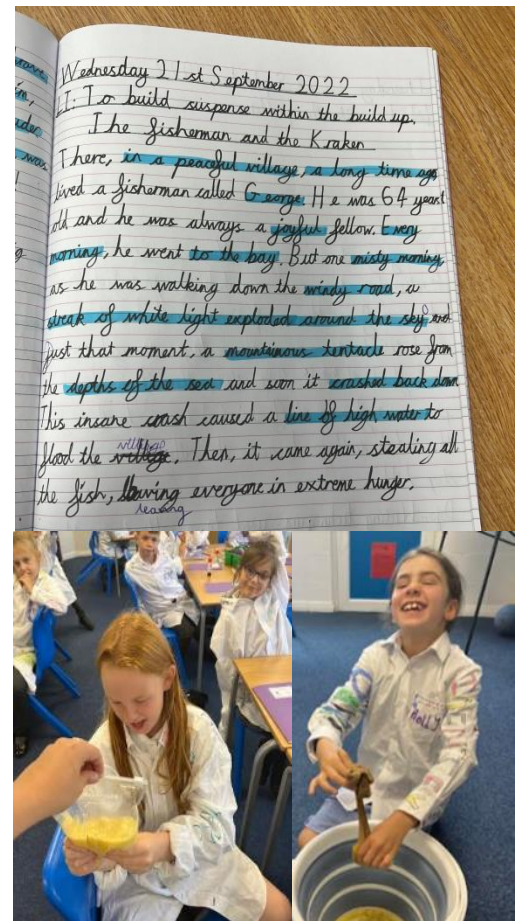 Wednesday 21st September 2022
LI: To build suspense within the build up.
The fisherman and the Kraken
There, in a peaceful village, a long time ago
lived a fisherman called George. He was 64 years
old and he was always a joyful fellow. Every
morning, he went to the bay. But one misty morning,
as he was walking down the windy road, a
streak of white light exploded around the sky and
just that moment, a mountainous tentacle rose from
the depths of the sea and soon it crashed back down
This insane crash caused a line of high water to
village
flood the village. Then, it came again, stealing all
the fish, leaving everyone in extreme hunger.
leaving
was